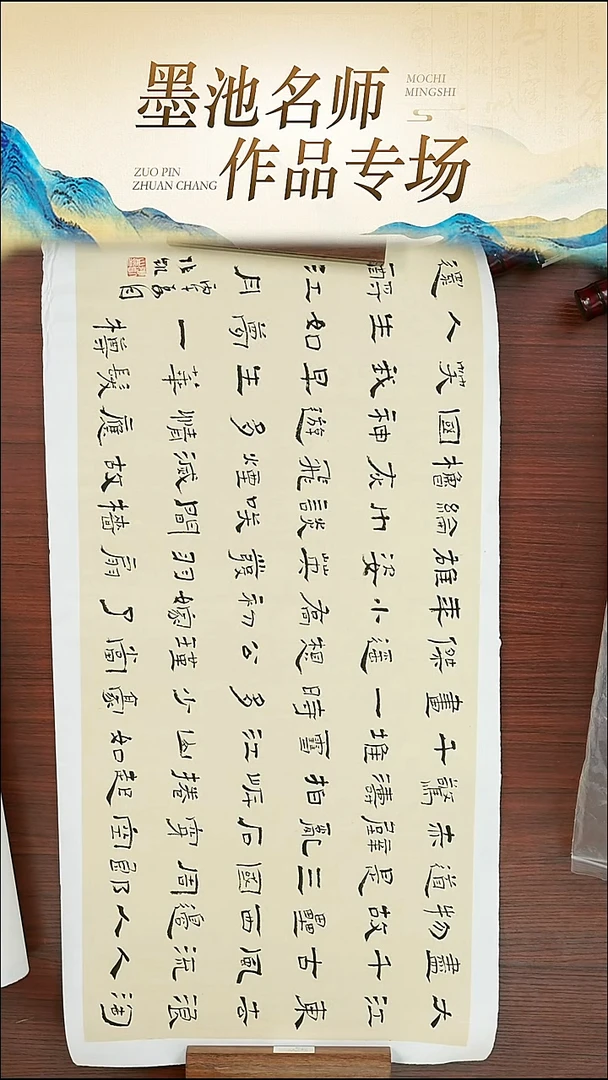 墨池名师
MOCHI
MINGSHI
作品专场
ZUO PIN
ZHUAN CHANG
大江東去浪淘
盡千古風流人
物故壘西邊人
道是三國周郎
赤壁亂石穿空
驚濤拍岸捲起
千堆雪江山如
畫一時多少豪
傑遙想公瑾當
年小喬初嫁了
雄姿英發羽扇
綸巾談笑間檣
櫓灰飛煙滅故
國神遊多情應
笑我早生華髮
人生如夢一樽
還酹江月